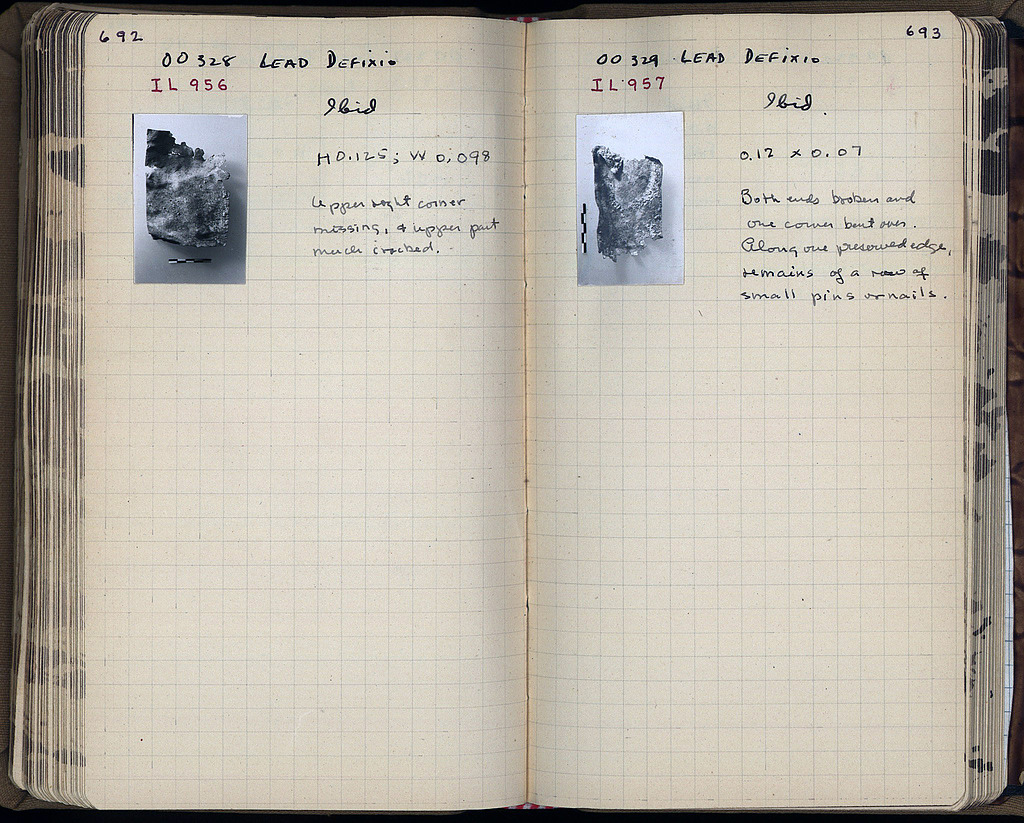 692
OO 328 LEAD DEFIXIO
IL 956
Ibid
H 0.125; W 0.098
Upper right corner
missing, & upper part
much cracked.
693
OO 329 LEAD DEFIXIO
IL 957
Ibid.
0.12 x 0.07
Both ends broken and
one corner bent over.
Along one preserved edge,
remains of a row of
small pins or nails.